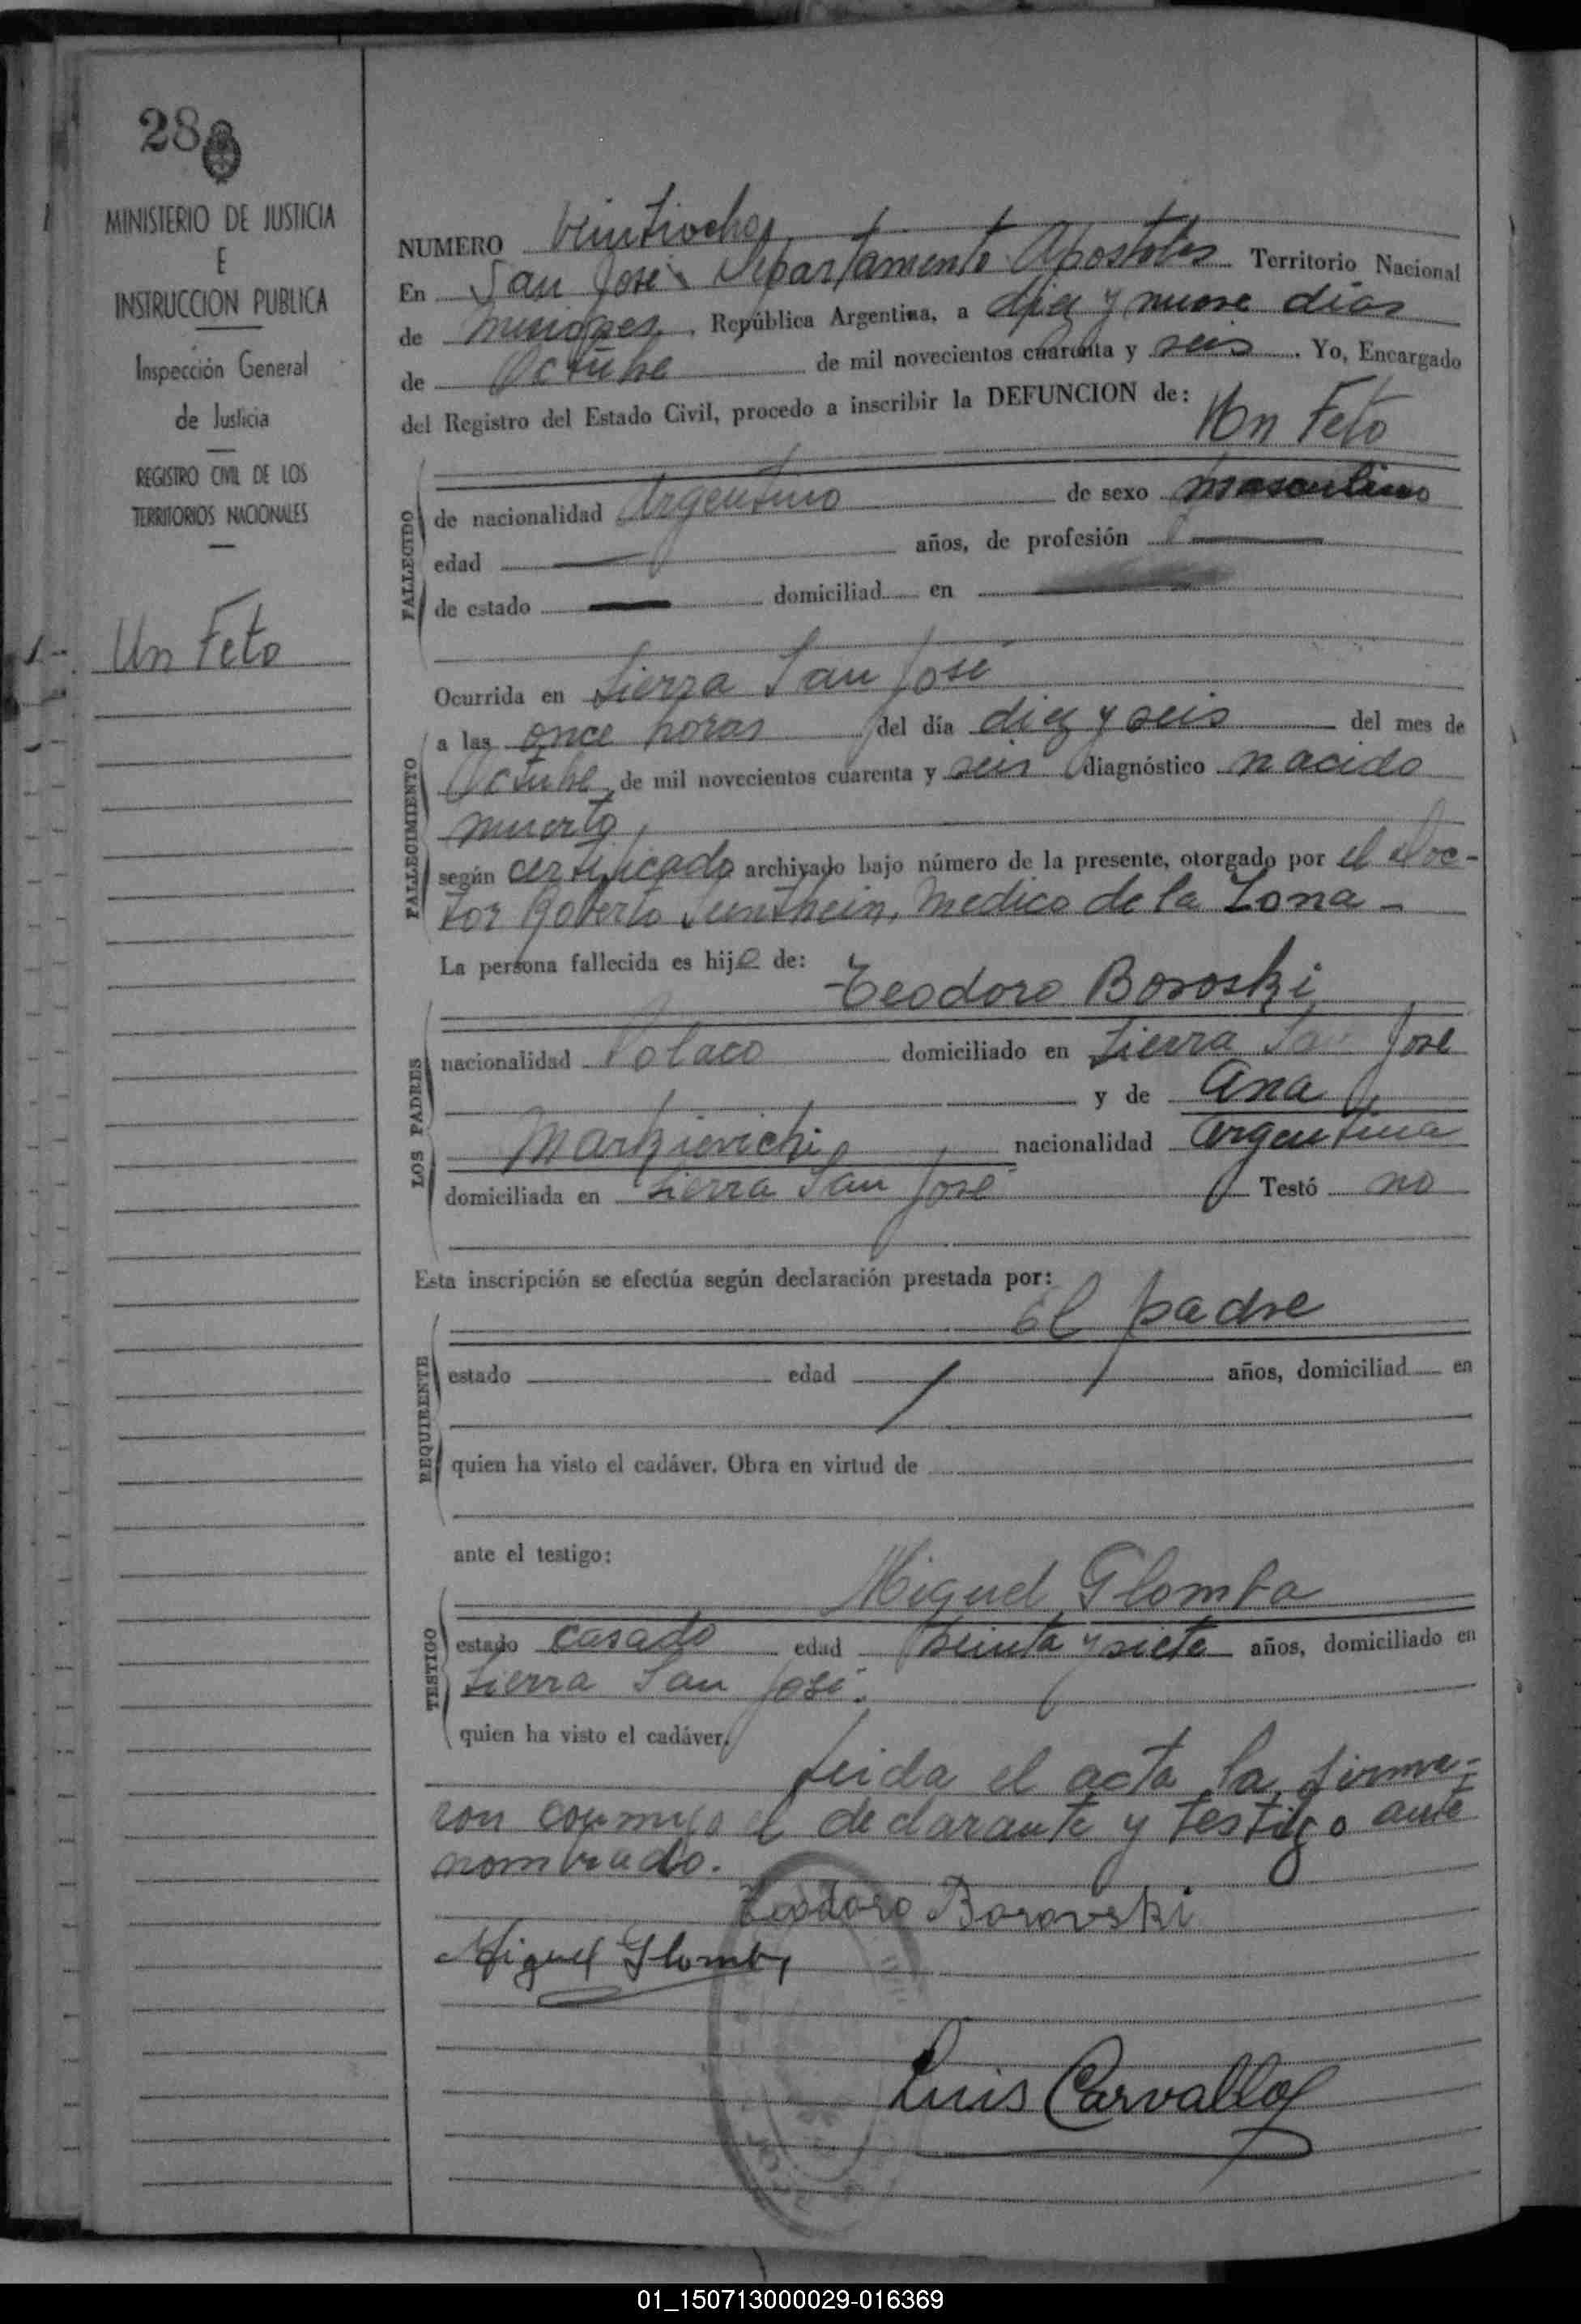 28
MINISTERIO DE JUSTICIA
E
INSTRUCCION PUBLICA
Inspección General
de Justicia
REGISTRO CIVIL DE LOS
TERRITORIOS NACIONALES
Un Feto
NUMERO veintiocho
En San José Departamento Apostoles Territorio Nacional
de Misiones, República Argentina, a diez y nueve dias
de Octubre de mil novecientos cuarenta y seis. Yo, Encargado
del Registro del Estado Civil, procedo a inscribir la DEFUNCION de:
Un Feto
FALLECIDO
de nacionalidad Argentino de sexo masculino
edad años, de profesión
de estado domiciliad en
Ocurrida en Sierra San José
FALLECIMIENTO
a las once horas del día diez y seis del mes de
Octubre de mil novecientos cuarenta y seis diagnóstico nacido
muerto,
según certificado archivado bajo número de la presente, otorgado por el Doc-
tor Roberto Medico de la Zona-
La persona fallecida es hijo de:
Teodoro Boroski
LOS PADRES
nacionalidad Polaco domiciliado en Sierra San José
y de Ana
Markievichi nacionalidad Argentina
domiciliada en Sierra San José Testó no
Esta inscripción se efectúa según declaración prestada por:
El padre
REQUIRENTE
estado edad años, domiciliad en
quien ha visto el cadáver. Obra en virtud de
ante el testigo:
Miguel Glomba
TESTIGO
estado casado edad treinta y siete años, domiciliado en
Sierra San José.
quien ha visto el cadáver.
Leida el acta la firma-
ron conmigo el declarante y testigo ante
nombrado.
Teodoro Borovski
Miguel Glomb
Luis Carvallo
01_150713000029-016369